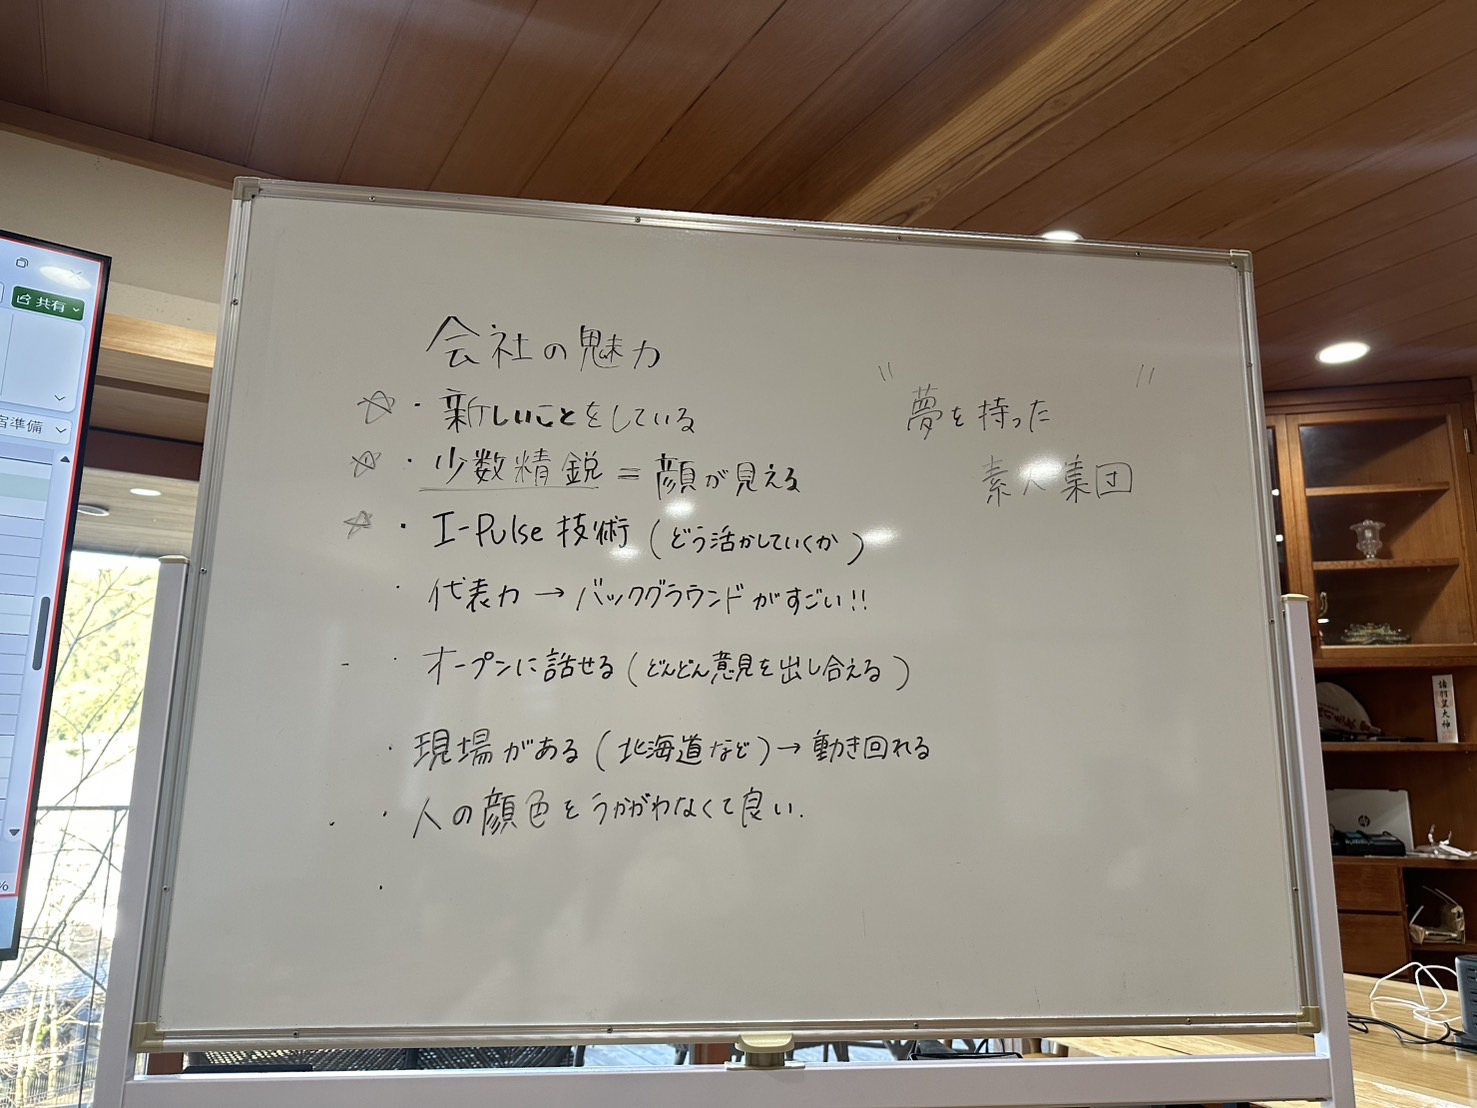 共有
宿準備
%
会社の魅力
☆・新しいことをしている
☆・少数精鋭 = 顔が見える
☆・I-Pulse 技術 (どう活かしていくか)
・代表力 → バックグラウンドがすごい!!
・オープンに話せる (どんどん意見を出し合える)
・現場がある (北海道など) → 動き回れる
・人の顔色をうかがわなくて良い.
・
"夢を持った"
素人集団
hp